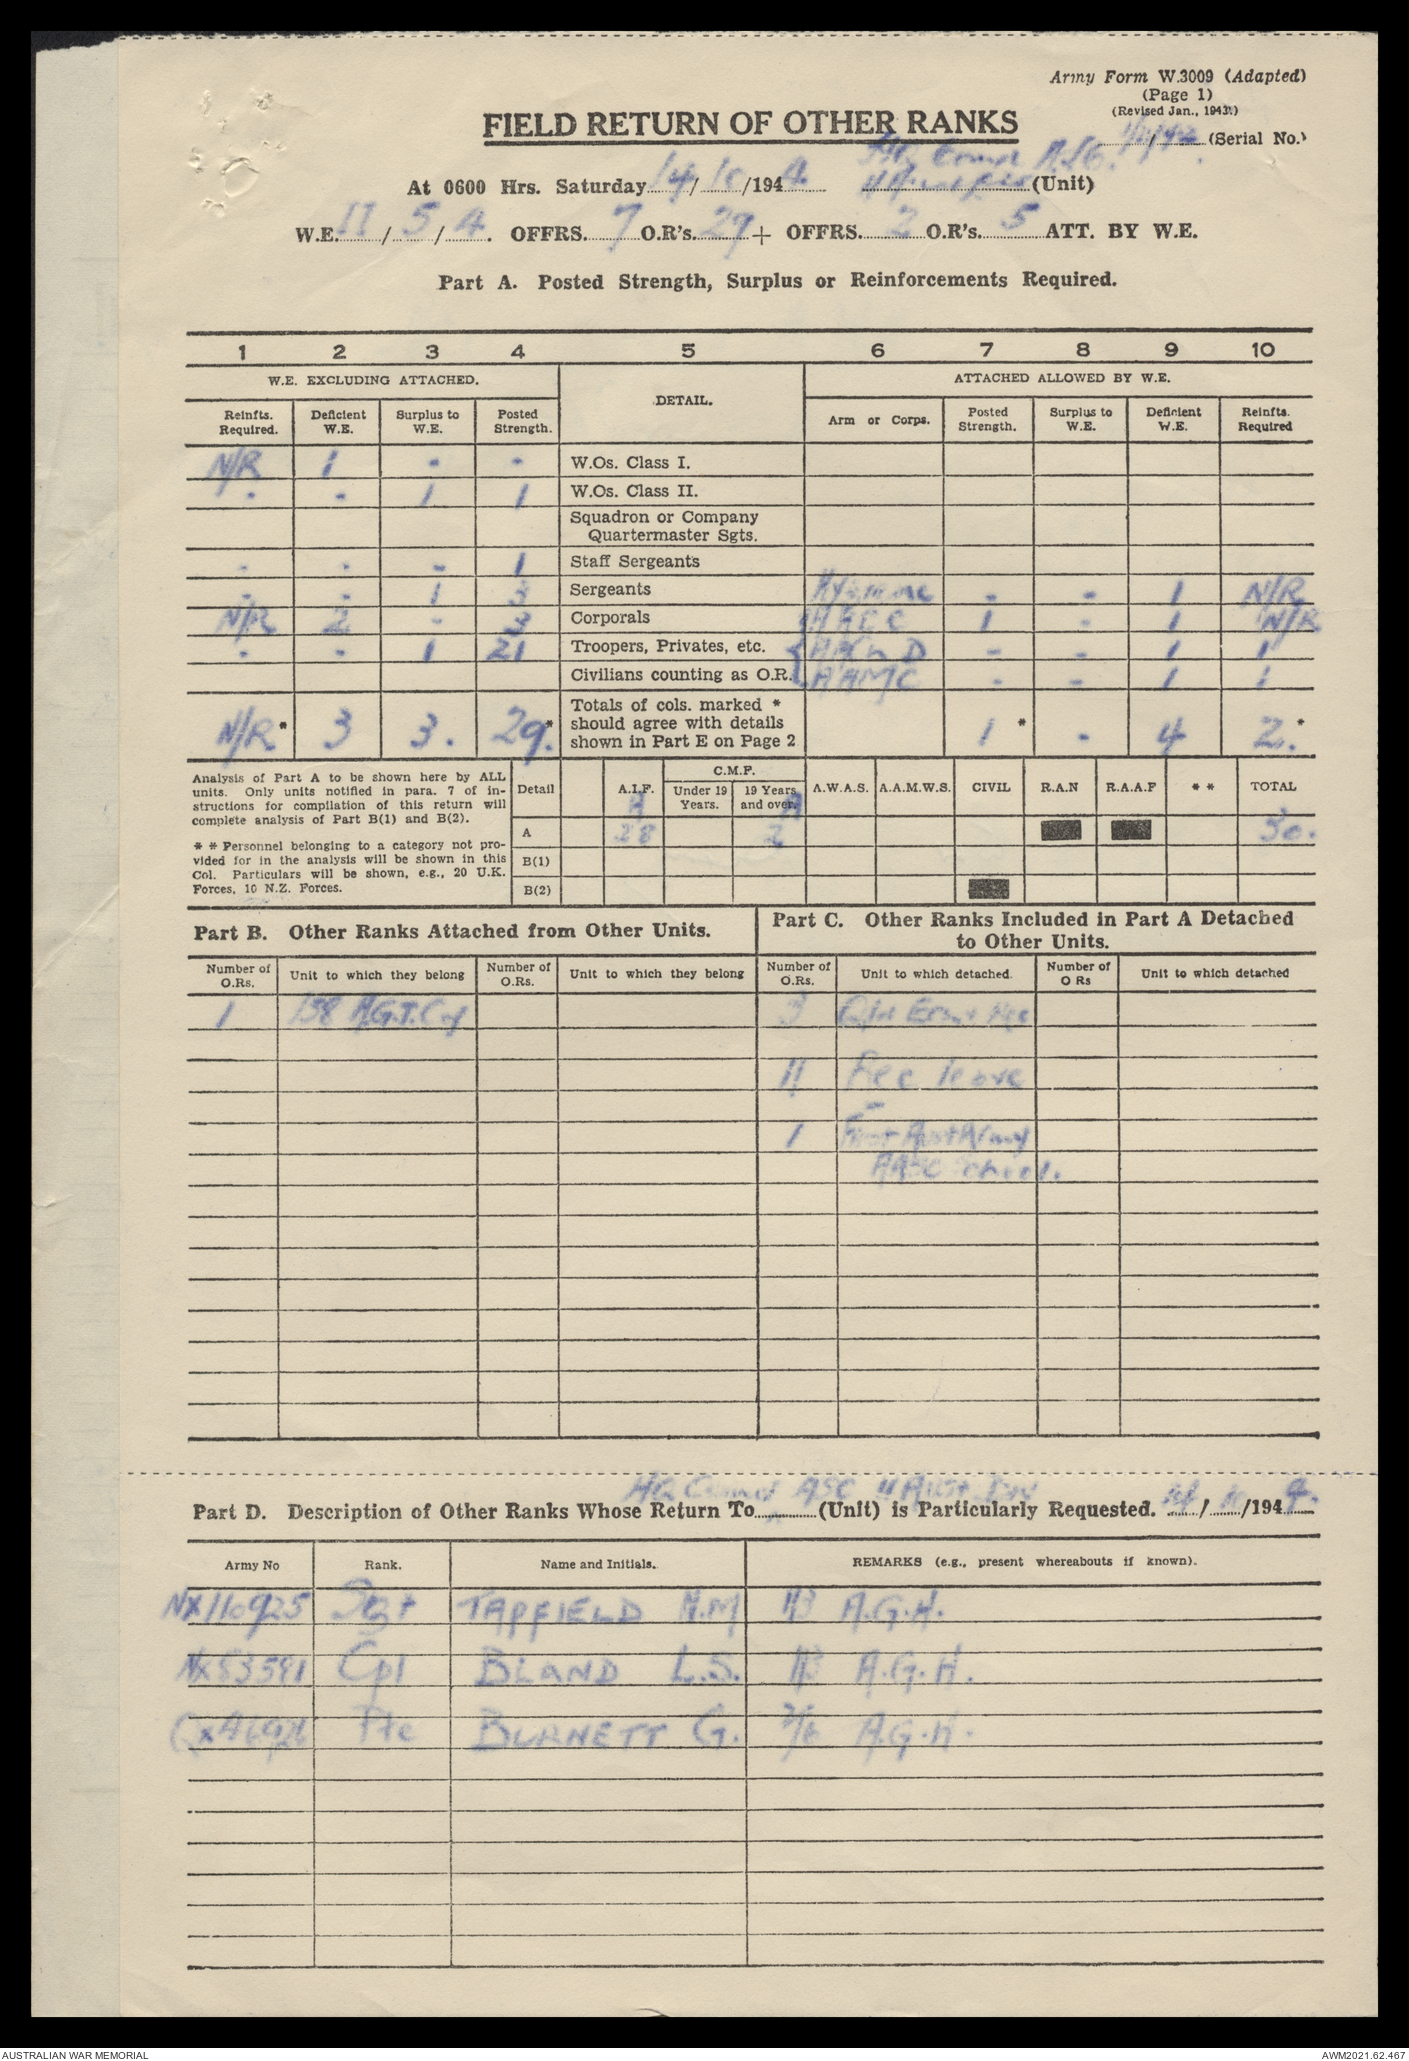 Army Form W.3009 (Adapted)
(Page 1)
(Revised Jan., 1943.)
FIELD RETURN OF OTHER RANKS
(Serial No.)
HQ Comd A.S.C.
At 0600 Hrs. Saturday 14/10/1944 (Unit)
W.E. II/5/4. OFFRS. 7 O.R's. 29 + OFFRS. 2 O.R's. 5 ATT. BY W.E.
Part A. Posted Strength, Surplus or Reinforcements Required.
1 2 3 4 5 6 7 8 9 10
W.E. EXCLUDING ATTACHED. DETAIL. ATTACHED ALLOWED BY W.E.
Reinfts. Required. Deficient W.E. Surplus to W.E. Posted Strength. Arm or Corps. Posted Strength. Surplus to W.E. Deficient W.E. Reinfts. Required
N/R 1 - - W.Os. Class I.
- - 1 1 W.Os. Class II.
Squadron or Company
Quartermaster Sgts.
- - - 1 Staff Sergeants
- - 1 3 Sergeants - - 1 N/R
N/R 2 - 3 Corporals AACC 1 - 1 N/R
- - 1 21 Troopers, Privates, etc. - - 1 1
Civilians counting as O.R. AAMC - - 1 1
Totals of cols. marked *
should agree with details
shown in Part E on Page 2
N/R* 3 3. 29.* 1* - 4 2.*
Analysis of Part A to be shown here by ALL
units. Only units notified in para. 7 of in-
structions for compilation of this return will
complete analysis of Part B(1) and B(2).
* * Personnel belonging to a category not pro-
vided for in the analysis will be shown in this
Col. Particulars will be shown, e.g., 20 U.K.
Forces, 10 N.Z. Forces.
C.M.F.
Detail A.I.F. Under 19 Years. 19 Years and over. A.W.A.S. A.A.M.W.S. CIVIL R.A.N R.A.A.F * * TOTAL
A A
A 28 2 30.
B(1)
B(2)
Part B. Other Ranks Attached from Other Units.
Part C. Other Ranks Included in Part A Detached
to Other Units.
Number of O.Rs. Unit to which they belong Number of O.Rs. Unit to which they belong Number of O.Rs. Unit to which detached. Number of O Rs Unit to which detached
1 138 A.G.T. Coy 3
11 Rec leave
1 First Aust Army
AASC School.
HQ Comd ASC 11 Aust Div
Part D. Description of Other Ranks Whose Return To (Unit) is Particularly Requested. 14/10/1944.
Army No Rank. Name and Initials. REMARKS (e.g., present whereabouts if known).
NX110925 Sgt TAPFIELD N.M 113 A.G.H.
NX53591 Cpl BLAND L.S. 113 A.G.H.
Pte BURNETT G. 2/6 A.G.H.
AUSTRALIAN WAR MEMORIAL
AWM2021.62.467